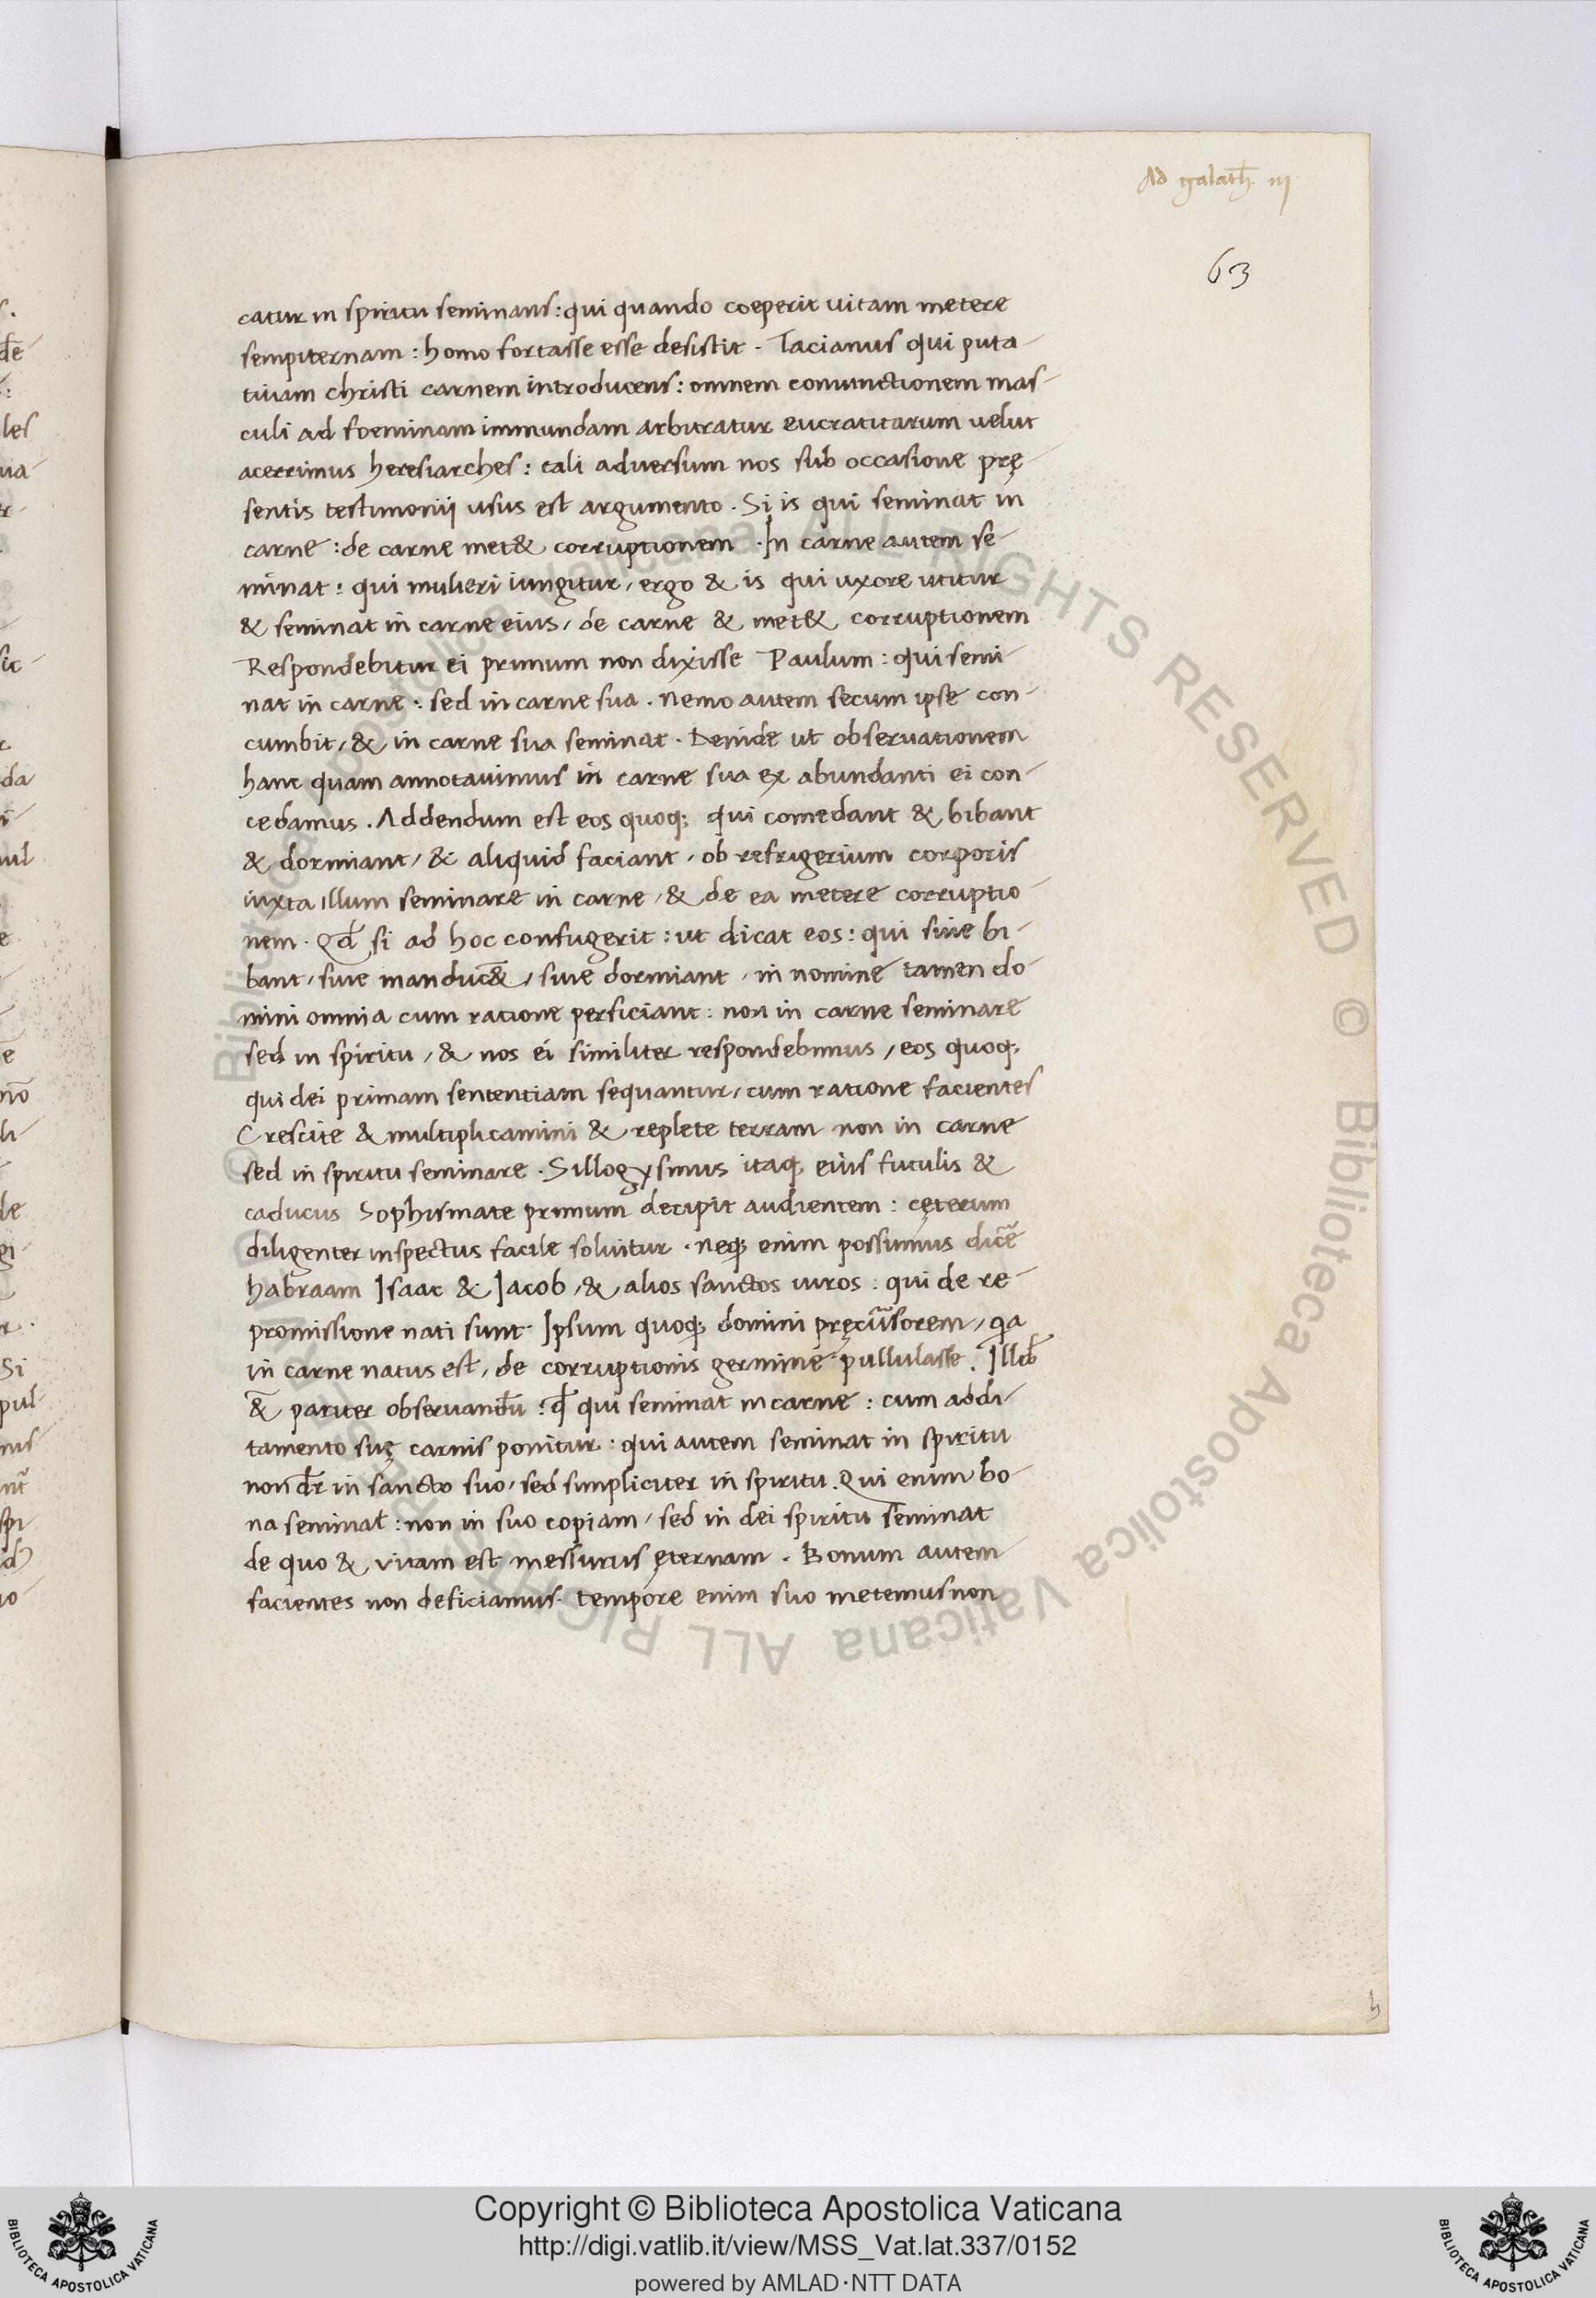 Ad galath̄. iij
63
catur in spiritu seminans: qui quando coeperit uitam metere
sempiternam: homo fortasse esse desistit. Tacianus qui puta-
tiuam christi carnem introducens: omnem coniunctionem mas-
culi ad foeminam immundam arbitratur eucratitarum uelut
acerrimus heresiarches: tali aduersum nos sub occasione pre̜-
sentis testimonij usus est argumento. Si is qui seminat in
carne: de carne met& corruptionem. In carne autem se-
minat: qui mulieri iungitur, ergo & is qui uxore utitur
& seminat in carne eius, de carne & met& corruptionem
Respondebitur ei primum non dixisse Paulum: qui semi-
nat in carne: sed in carne sua. nemo autem secum ipse con-
cumbit, & in carne sua seminat. Deinde ut obseruationem
hanc quam annotauimus in carne sua ex abundanti ei con-
cedamus. Addendum est eos quoq; qui comedant & bibant
& dormiant, & aliquid faciant, ob refrigerium corporis
iuxta illum seminare in carne, & de ea metere corruptio-
nem. Qd̄ si ad hoc confugerit: ut dicat eos: qui siue bi-
bant, siue manduc&̄, siue dormiant, in nomine tamen do-
mini omnia cum ratione perficiant: non in carne seminare
sed in spiritu, & nos ei similiter respondebimus, eos quoq;
qui dei primam sententiam sequantur, cum ratione facientes
Crescite & multiplicamini & replete terram non in carne
sed in spiritu seminare. Sillogysmus itaq; eius futulis &
caducus Sophismate primum decipit audientem: ce̜terum
diligenter inspectus facile soluitur. neq; enim possumus dicē
habraam Isaac & Iacob, & alios sanctos uiros: qui de re-
promissione nati sunt. Ipsum quoq; domini pre̜cūsorem, qa
in carne natus est, de corruptionis germine pullulasse. Illd̄
&̄ pariter obseruandū: qd̄ qui seminat in carne: cum addi-
tamento sue̜ carnis ponitur: qui autem seminat in spiritu
non dr̄ in sancto suo, sed simpliciter in spiritu. Qui enim bo-
na seminat: non in suo copiam, sed in dei spiritu seminat
de quo & vitam est messurus e̜ternam. Bonum autem
facientes non deficiamus. tempore enim suo metemus non
h
© Biblioteca Apostolica Vaticana ALL RIGHTS RESERVED © Biblioteca Apostolica Vaticana ALL RIGHTS RESERVED
Copyright © Biblioteca Apostolica Vaticana
http://digi.vatlib.it/view/MSS_Vat.lat.337/0152
powered by AMLAD·NTT DATA
BIBLIOTECA APOSTOLICA VATICANA
BIBLIOTECA APOSTOLICA VATICANA